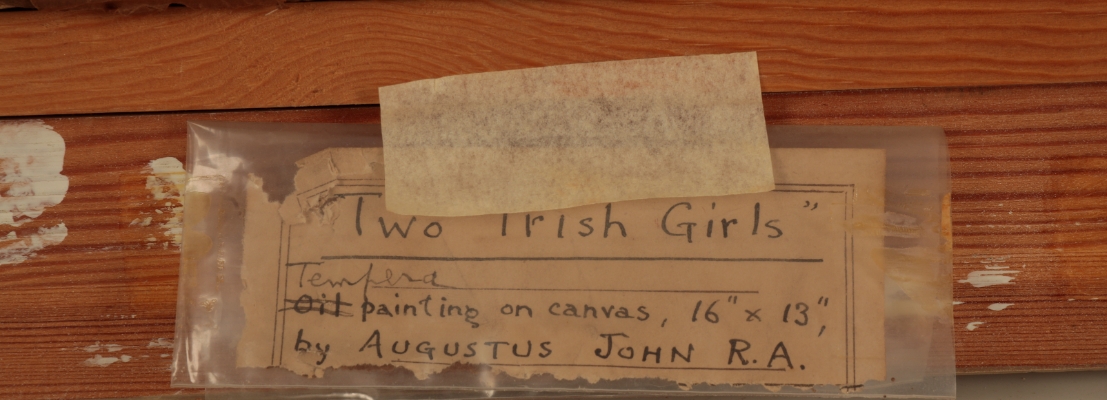 "Two Irish Girls"
Tempera
Oil painting on canvas, 16" x 13",
by AUGUSTUS JOHN R.A.